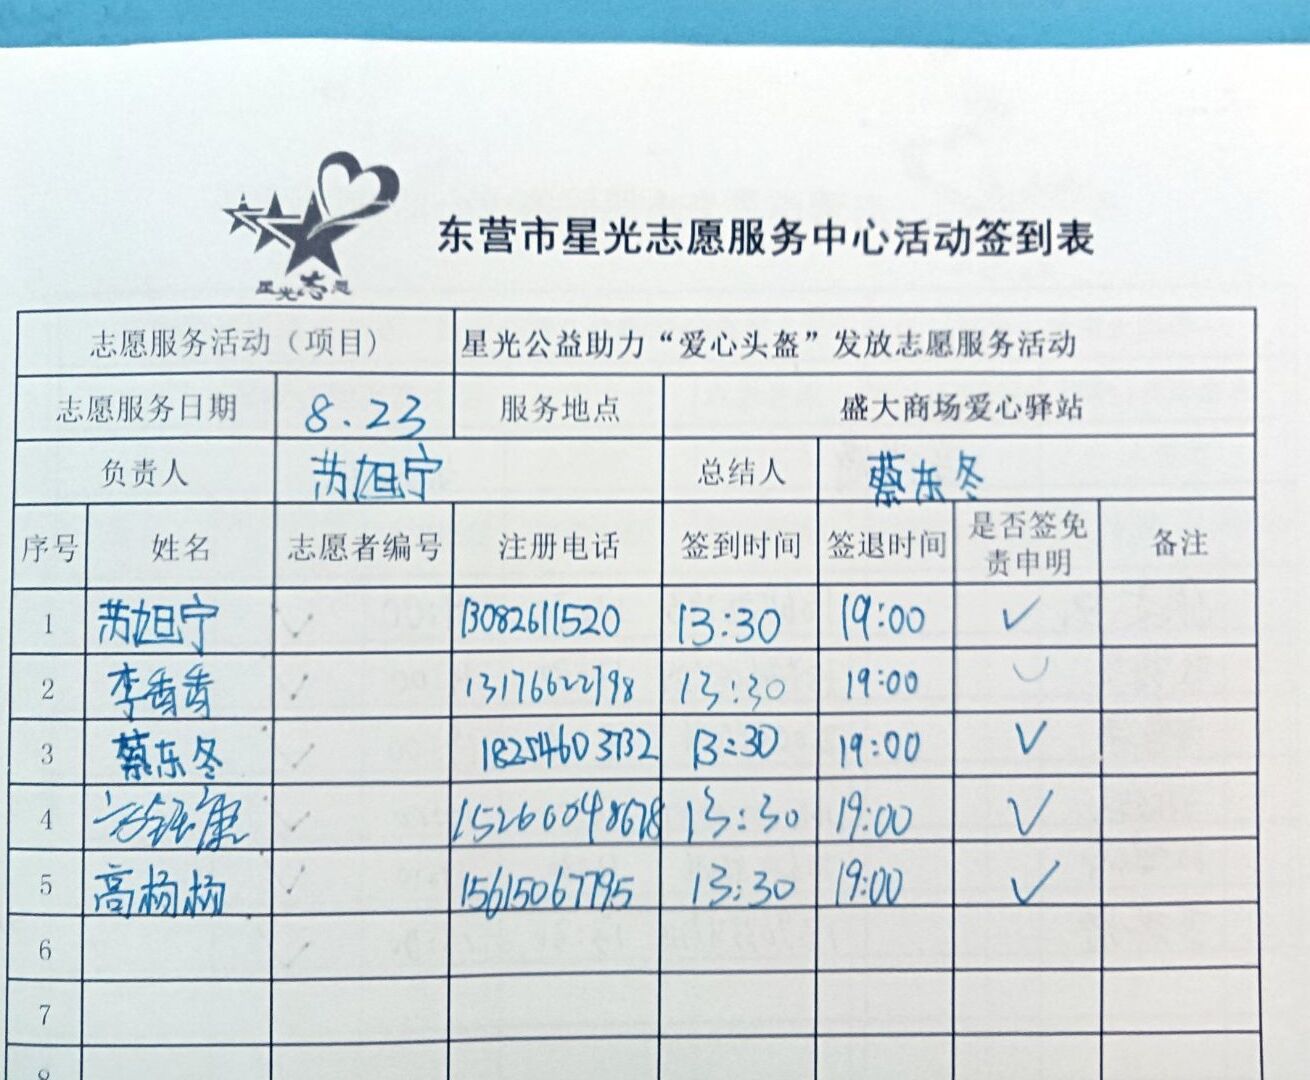 星光志愿
东营市星光志愿服务中心活动签到表
志愿服务活动（项目） 星光公益助力“爱心头盔”发放志愿服务活动
志愿服务日期 8.23 服务地点 盛大商场爱心驿站
负责人 苏旭宁 总结人 蔡东冬
序号 姓名 志愿者编号 注册电话 签到时间 签退时间 是否签免责申明 备注
1 苏旭宁 13082611520 13:30 19:00 ✓
2 李香香 13176622798 13:30 19:00
3 蔡东冬 18254603732 13:30 19:00 ✓
4 15266048678 13:30 19:00 ✓
5 高杨杨 15615067795 13:30 19:00 ✓
6
7
8